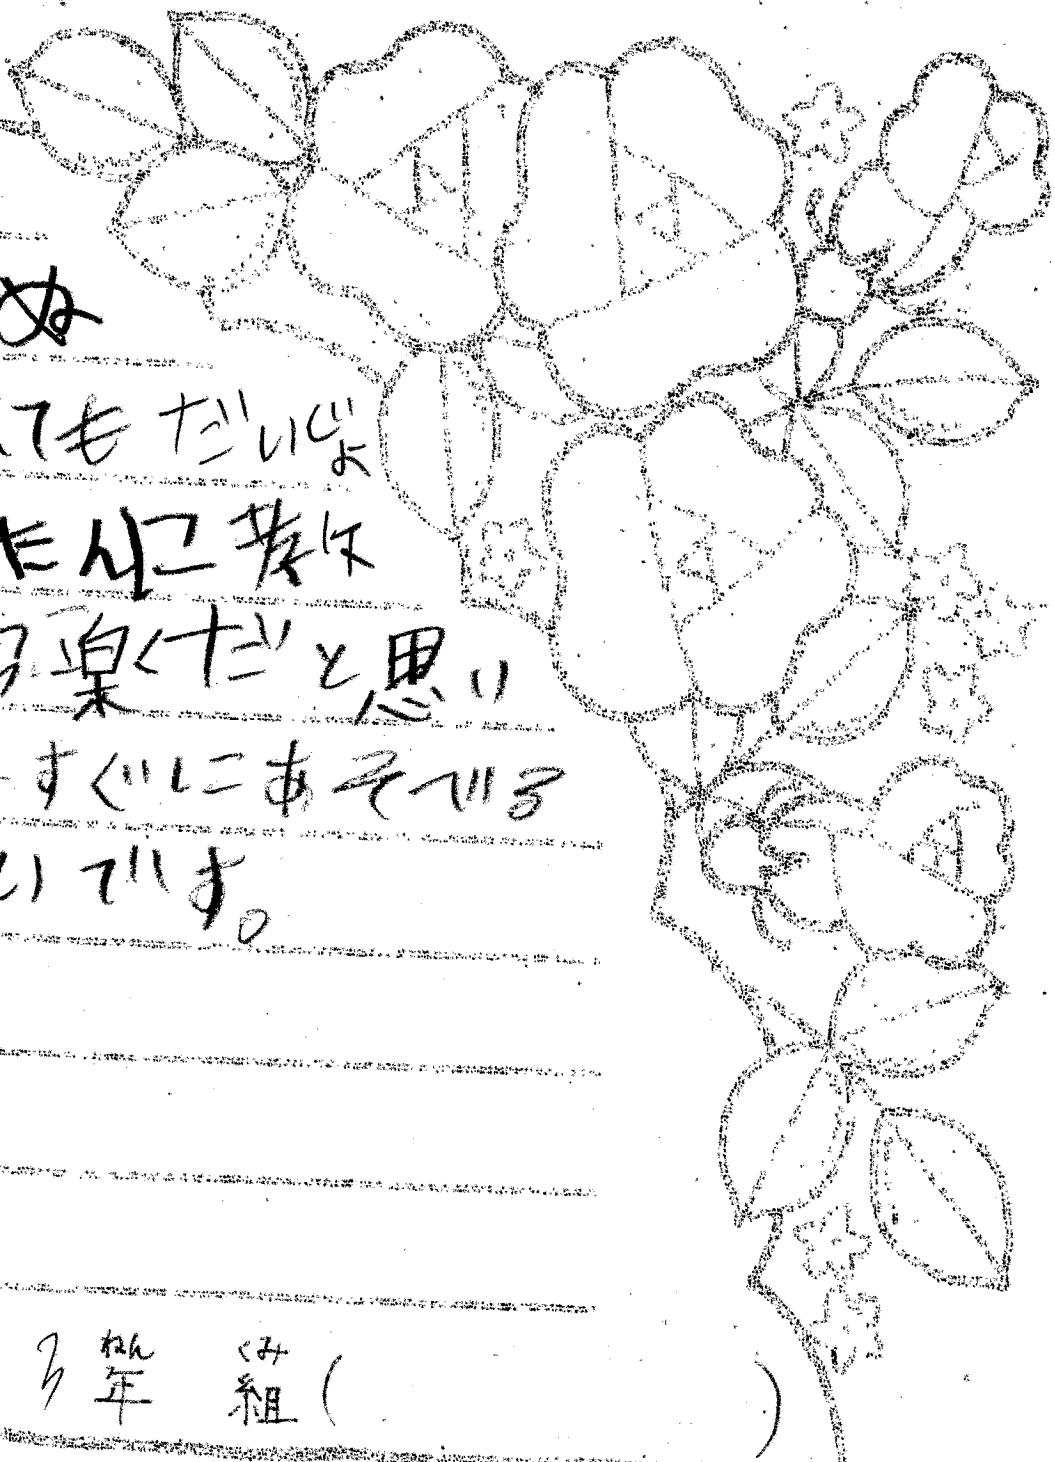 ぬ
てもだいじょ
たんに教は
楽くだと思い
すぐにあそびる
いです。
3年 組( )
ねん くみ